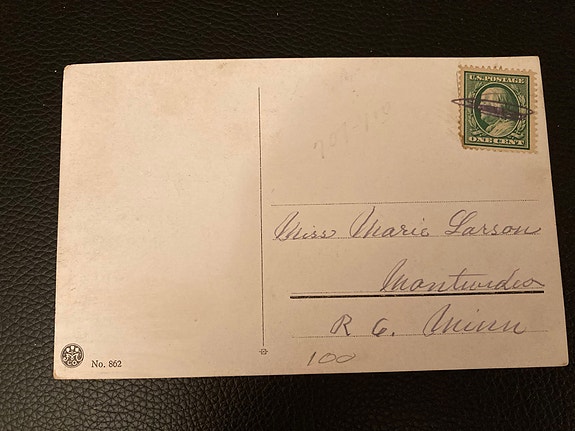 U.S. POSTAGE
ONE CENT
Miss Marie Larson
Montevideo
R 6. Minn
100
No. 862